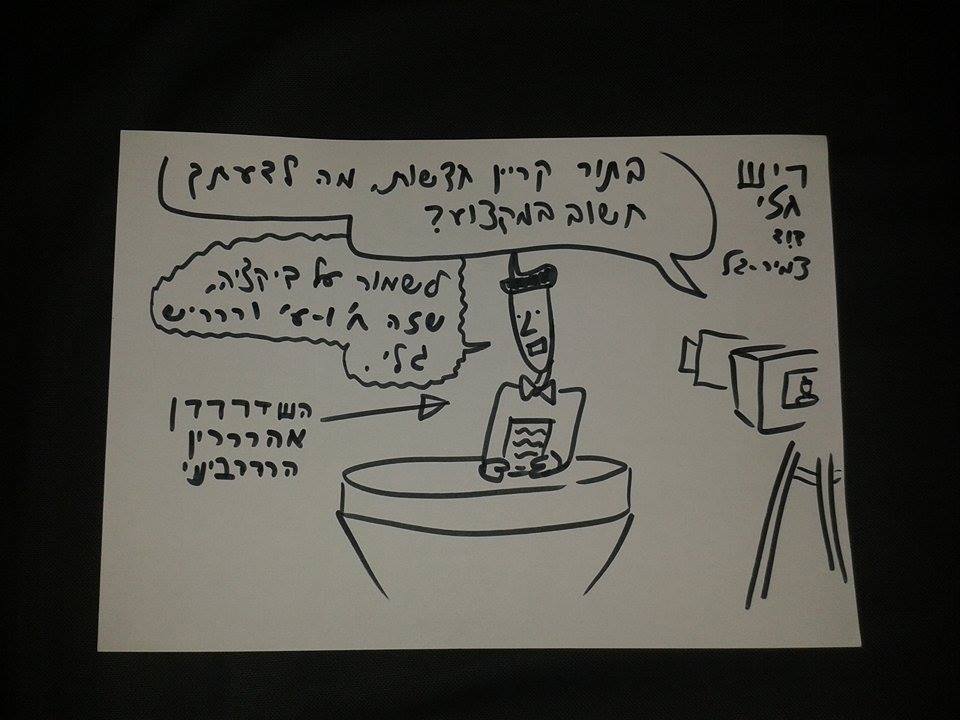 ריש
גלי
דוד
צמיר-גל
בתור קריין חדשות, מה לדעתך
חשוב במקצוע?
לשמור על דיקציה,
שזה ח' ו-ע' ורררריש
גלי.
השדררררן
אהרררון